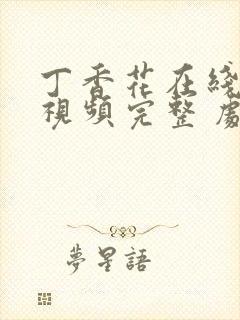 丁香花在綫
視頻完整處
夢星語